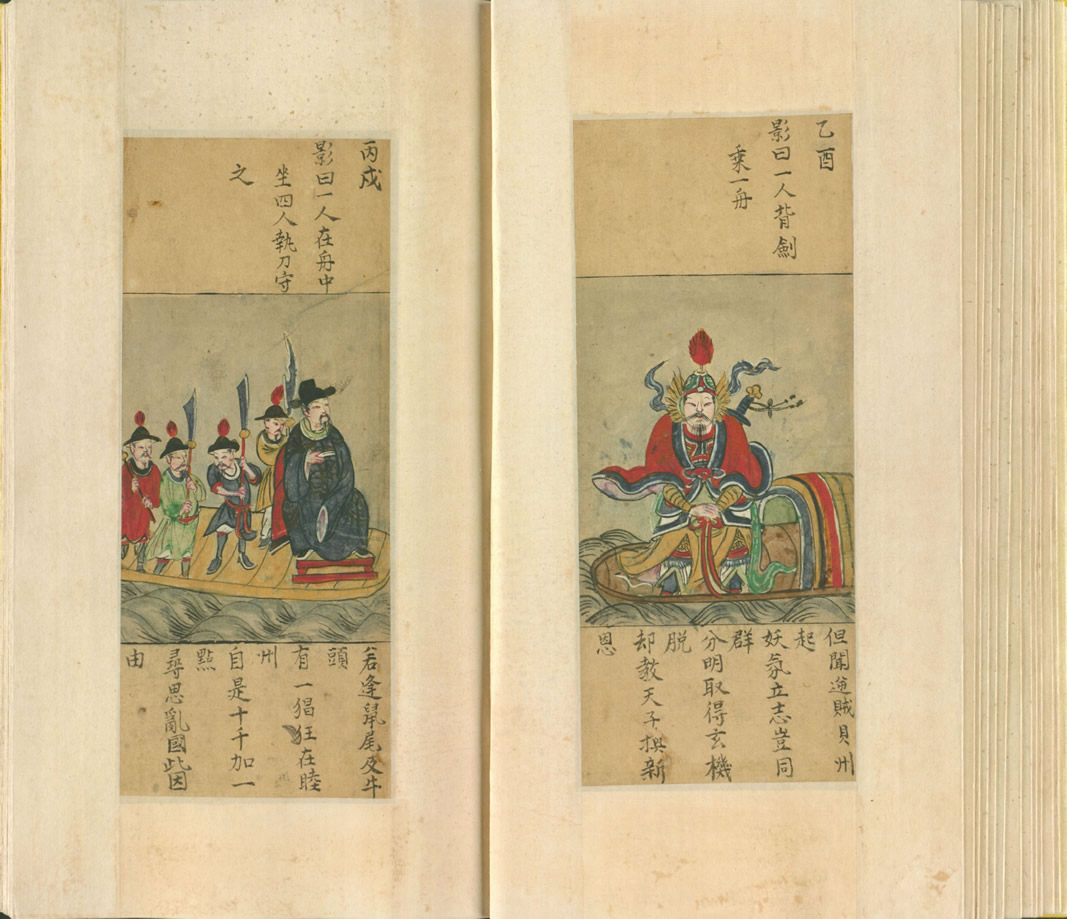 乙酉
影曰一人背劍
乗一舟
但聞逆賊貝州
起
妖氛立志豈同
群
分明取得玄機
脱
却教天子撰新
恩
丙戍
影曰一人在舟中
坐四人執刀守
之
若逢鼠尾及牛
頭
有一猖狂在睦
州
自是十千加一
㸃
尋思亂國此因
由